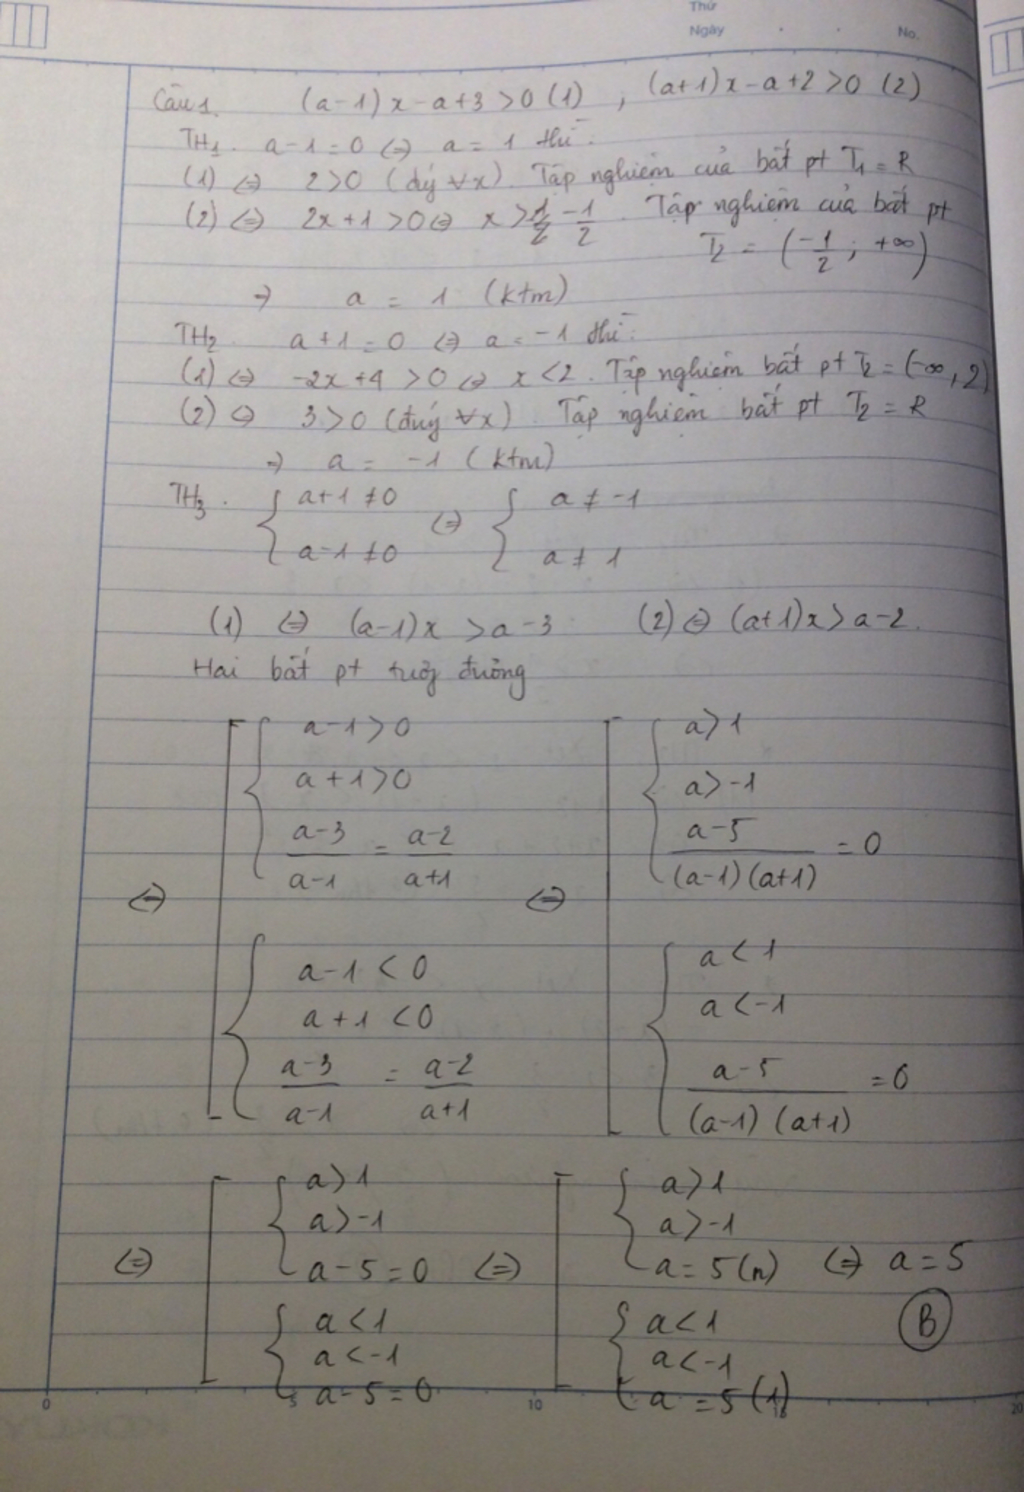 Thứ
Ngày . . No.
Câu 1. (a-1)x-a+3>0 (1) , (a+1)x-a+2>0 (2)
TH1. a-1=0 ⇔ a=1 thì:
(1) ⇔ 2>0 (đúng ∀x). Tập nghiệm của bất pt T1 = R
(2) ⇔ 2x+1>0 ⇔ x> -1/2. Tập nghiệm của bất pt
T2 = (-1/2; +∞)
⇒ a = 1 (ktm)
TH2 a+1=0 ⇔ a=-1 thì:
(1) ⇔ -2x+4>0 ⇔ x<2. Tập nghiệm bất pt T2=(-∞,2)
(2) ⇔ 3>0 (đúng ∀x). Tập nghiệm bất pt T2 = R
⇒ a = -1 (ktm)
TH3. { a+1≠0 ⇔ { a≠-1
a-1≠0 a≠1
(1) ⇔ (a-1)x >a-3 (2) ⇔ (a+1)x>a-2.
Hai bất pt tương đương
a-1>0 a>1
a+1>0 a>-1
(a-3)/(a-1) = (a-2)/(a+1) (a-5)/((a-1)(a+1)) = 0
⇔ ⇔
a-1<0 a<1
a+1<0 a<-1
(a-3)/(a-1) = (a-2)/(a+1) (a-5)/((a-1)(a+1)) = 0
a>1 a>1
a>-1 a>-1
⇔ a-5=0 ⇔ a=5(n) ⇔ a=5
a<1 a<1 B
a<-1 a<-1
a-5=0 a=5(l)
0 5 10 15 20